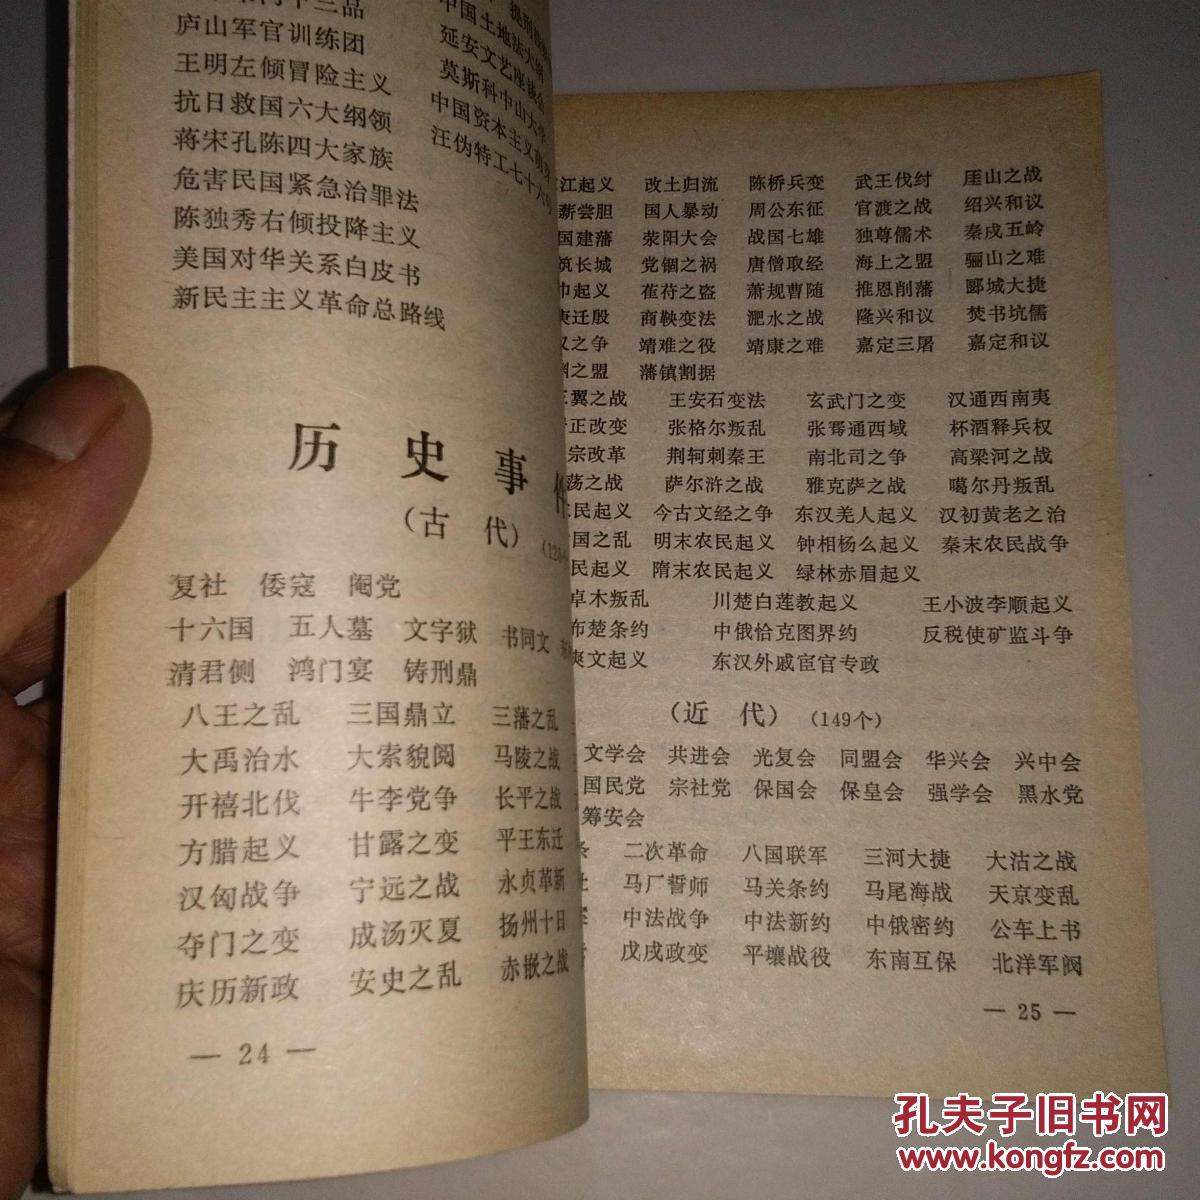 庐山军官训练团
王明左倾冒险主义
抗日救国六大纲领
蒋宋孔陈四大家族
危害民国紧急治罪法
陈独秀右倾投降主义
美国对华关系白皮书
新民主主义革命总路线
中国土地法大纲
延安文艺座谈会
莫斯科中山大学
中国资本主义萌芽
汪伪特工七十六号
历史事件
（古代）
复社 倭寇 阉党
十六国 五人墓 文字狱 书同文
清君侧 鸿门宴 铸刑鼎
八王之乱 三国鼎立 三藩之乱
大禹治水 大索貌阅 马陵之战
开禧北伐 牛李党争 长平之战
方腊起义 甘露之变 平王东迁
汉匈战争 宁远之战 永贞革新
夺门之变 成汤灭夏 扬州十日
庆历新政 安史之乱 赤嵌之战
— 24 —
江起义 改土归流 陈桥兵变 武王伐纣 厓山之战
薪尝胆 国人暴动 周公东征 官渡之战 绍兴和议
国建藩 荥阳大会 战国七雄 独尊儒术 秦戍五岭
筑长城 党锢之祸 唐僧取经 海上之盟 骊山之难
巾起义 萑苻之盗 萧规曹随 推恩削藩 郾城大捷
庚迁殷 商鞅变法 淝水之战 隆兴和议 焚书坑儒
汉之争 靖难之役 靖康之难 嘉定三屠 嘉定和议
渊之盟 藩镇割据
翼之战 王安石变法 玄武门之变 汉通西南夷
正改变 张格尔叛乱 张骞通西域 杯酒释兵权
宗改革 荆轲刺秦王 南北司之争 高梁河之战
荡之战 萨尔浒之战 雅克萨之战 噶尔丹叛乱
民起义 今古文经之争 东汉羌人起义 汉初黄老之治
国之乱 明末农民起义 钟相杨么起义 秦末农民战争
民起义 隋末农民起义 绿林赤眉起义
卓木叛乱 川楚白莲教起义 王小波李顺起义
布楚条约 中俄恰克图界约 反税使矿监斗争
爽文起义 东汉外戚宦官专政
（近代）（149个）
文学会 共进会 光复会 同盟会 华兴会 兴中会
国民党 宗社党 保国会 保皇会 强学会 黑水党
筹安会
条 二次革命 八国联军 三河大捷 大沽之战
马厂誓师 马关条约 马尾海战 天京变乱
中法战争 中法新约 中俄密约 公车上书
戊戌政变 平壤战役 东南互保 北洋军阀
— 25 —
孔夫子旧书网
www.kongfz.com